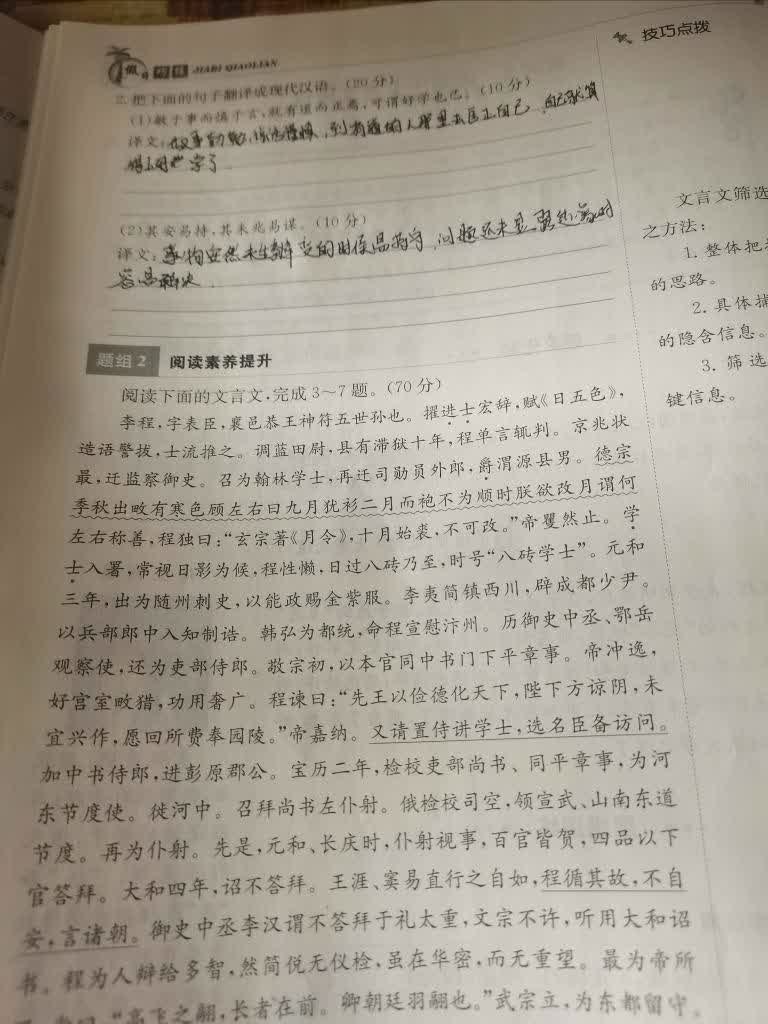 假日 精练 JIARI QIAOLIAN
技巧点拨
2. 把下面的句子翻译成现代汉语。(20分)
(1)敏于事而慎于言,就有道而正焉,可谓好学也已。(10分)
译文: 做事勤勉,说话谨慎,到有道的人那里去匡正自己
学了
(2)其安易持,其未兆易谋。(10分)
译文:事物安然未生变的时候易持守,问题还未显露迹象时
容易解决.
题组2 阅读素养提升
阅读下面的文言文,完成3~7题。(70分)
李程,字表臣,襄邑恭王神符五世孙也。擢进士宏辞,赋《日五色》,
造语警拔,士流推之。调蓝田尉,县有滞狱十年,程单言辄判。京兆状
最,迁监察御史。召为翰林学士,再迁司勋员外郎,爵渭源县男。德宗
季秋出畋有寒色顾左右曰九月犹衫二月而袍不为顺时朕欲改月谓何
左右称善,程独曰:“玄宗著《月令》,十月始裘,不可改。”帝矍然止。学
士入署,常视日影为候,程性懒,日过八砖乃至,时号“八砖学士”。元和
三年,出为随州刺史,以能政赐金紫服。李夷简镇西川,辟成都少尹。
以兵部郎中入知制诰。韩弘为都统,命程宣慰汴州。历御史中丞、鄂岳
观察使,还为吏部侍郎。敬宗初,以本官同中书门下平章事。帝冲逸,
好宫室畋猎,功用奢广。程谏曰:“先王以俭德化天下,陛下方谅阴,未
宜兴作,愿回所费奉园陵。”帝嘉纳。又请置侍讲学士,选名臣备访问。
加中书侍郎,进彭原郡公。宝历二年,检校吏部尚书、同平章事,为河
东节度使。徙河中。召拜尚书左仆射。俄检校司空,领宣武、山南东道
节度。再为仆射。先是,元和、长庆时,仆射视事,百官皆贺,四品以下
官答拜。大和四年,诏不答拜。王涯、窦易直行之自如,程循其故,不自
安,言诸朝。御史中丞李汉谓不答拜于礼太重,文宗不许,听用大和诏
书。程为人辩给多智,然简侻无仪检,虽在华密,而无重望。最为帝所
“高飞之翮,长者在前。卿朝廷羽翮也。”武宗立,为东都留守。
文言文筛选
之方法:
1. 整体把
的思路。
2. 具体捕
的隐含信息。
3. 筛选
键信息。